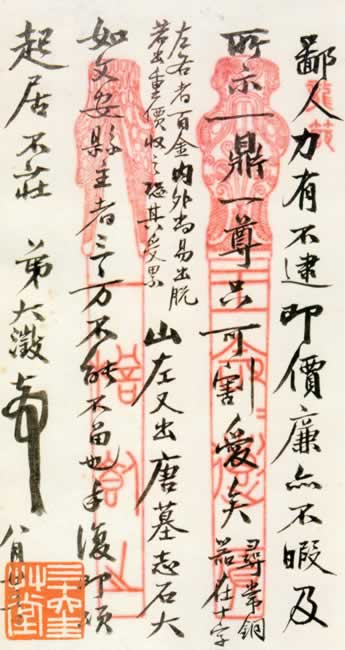 鄙人力有不逮即價廉亦不暇及
所示一鼎一尊只可割愛矣
尋常銅
器在十字
左右者百金內外尚易出脫
若出重價收之恐其受累
山左又出唐墓志石大
如文安縣主者 万不能不留也手復即頌
起居不莊 弟大澂頓首
八月